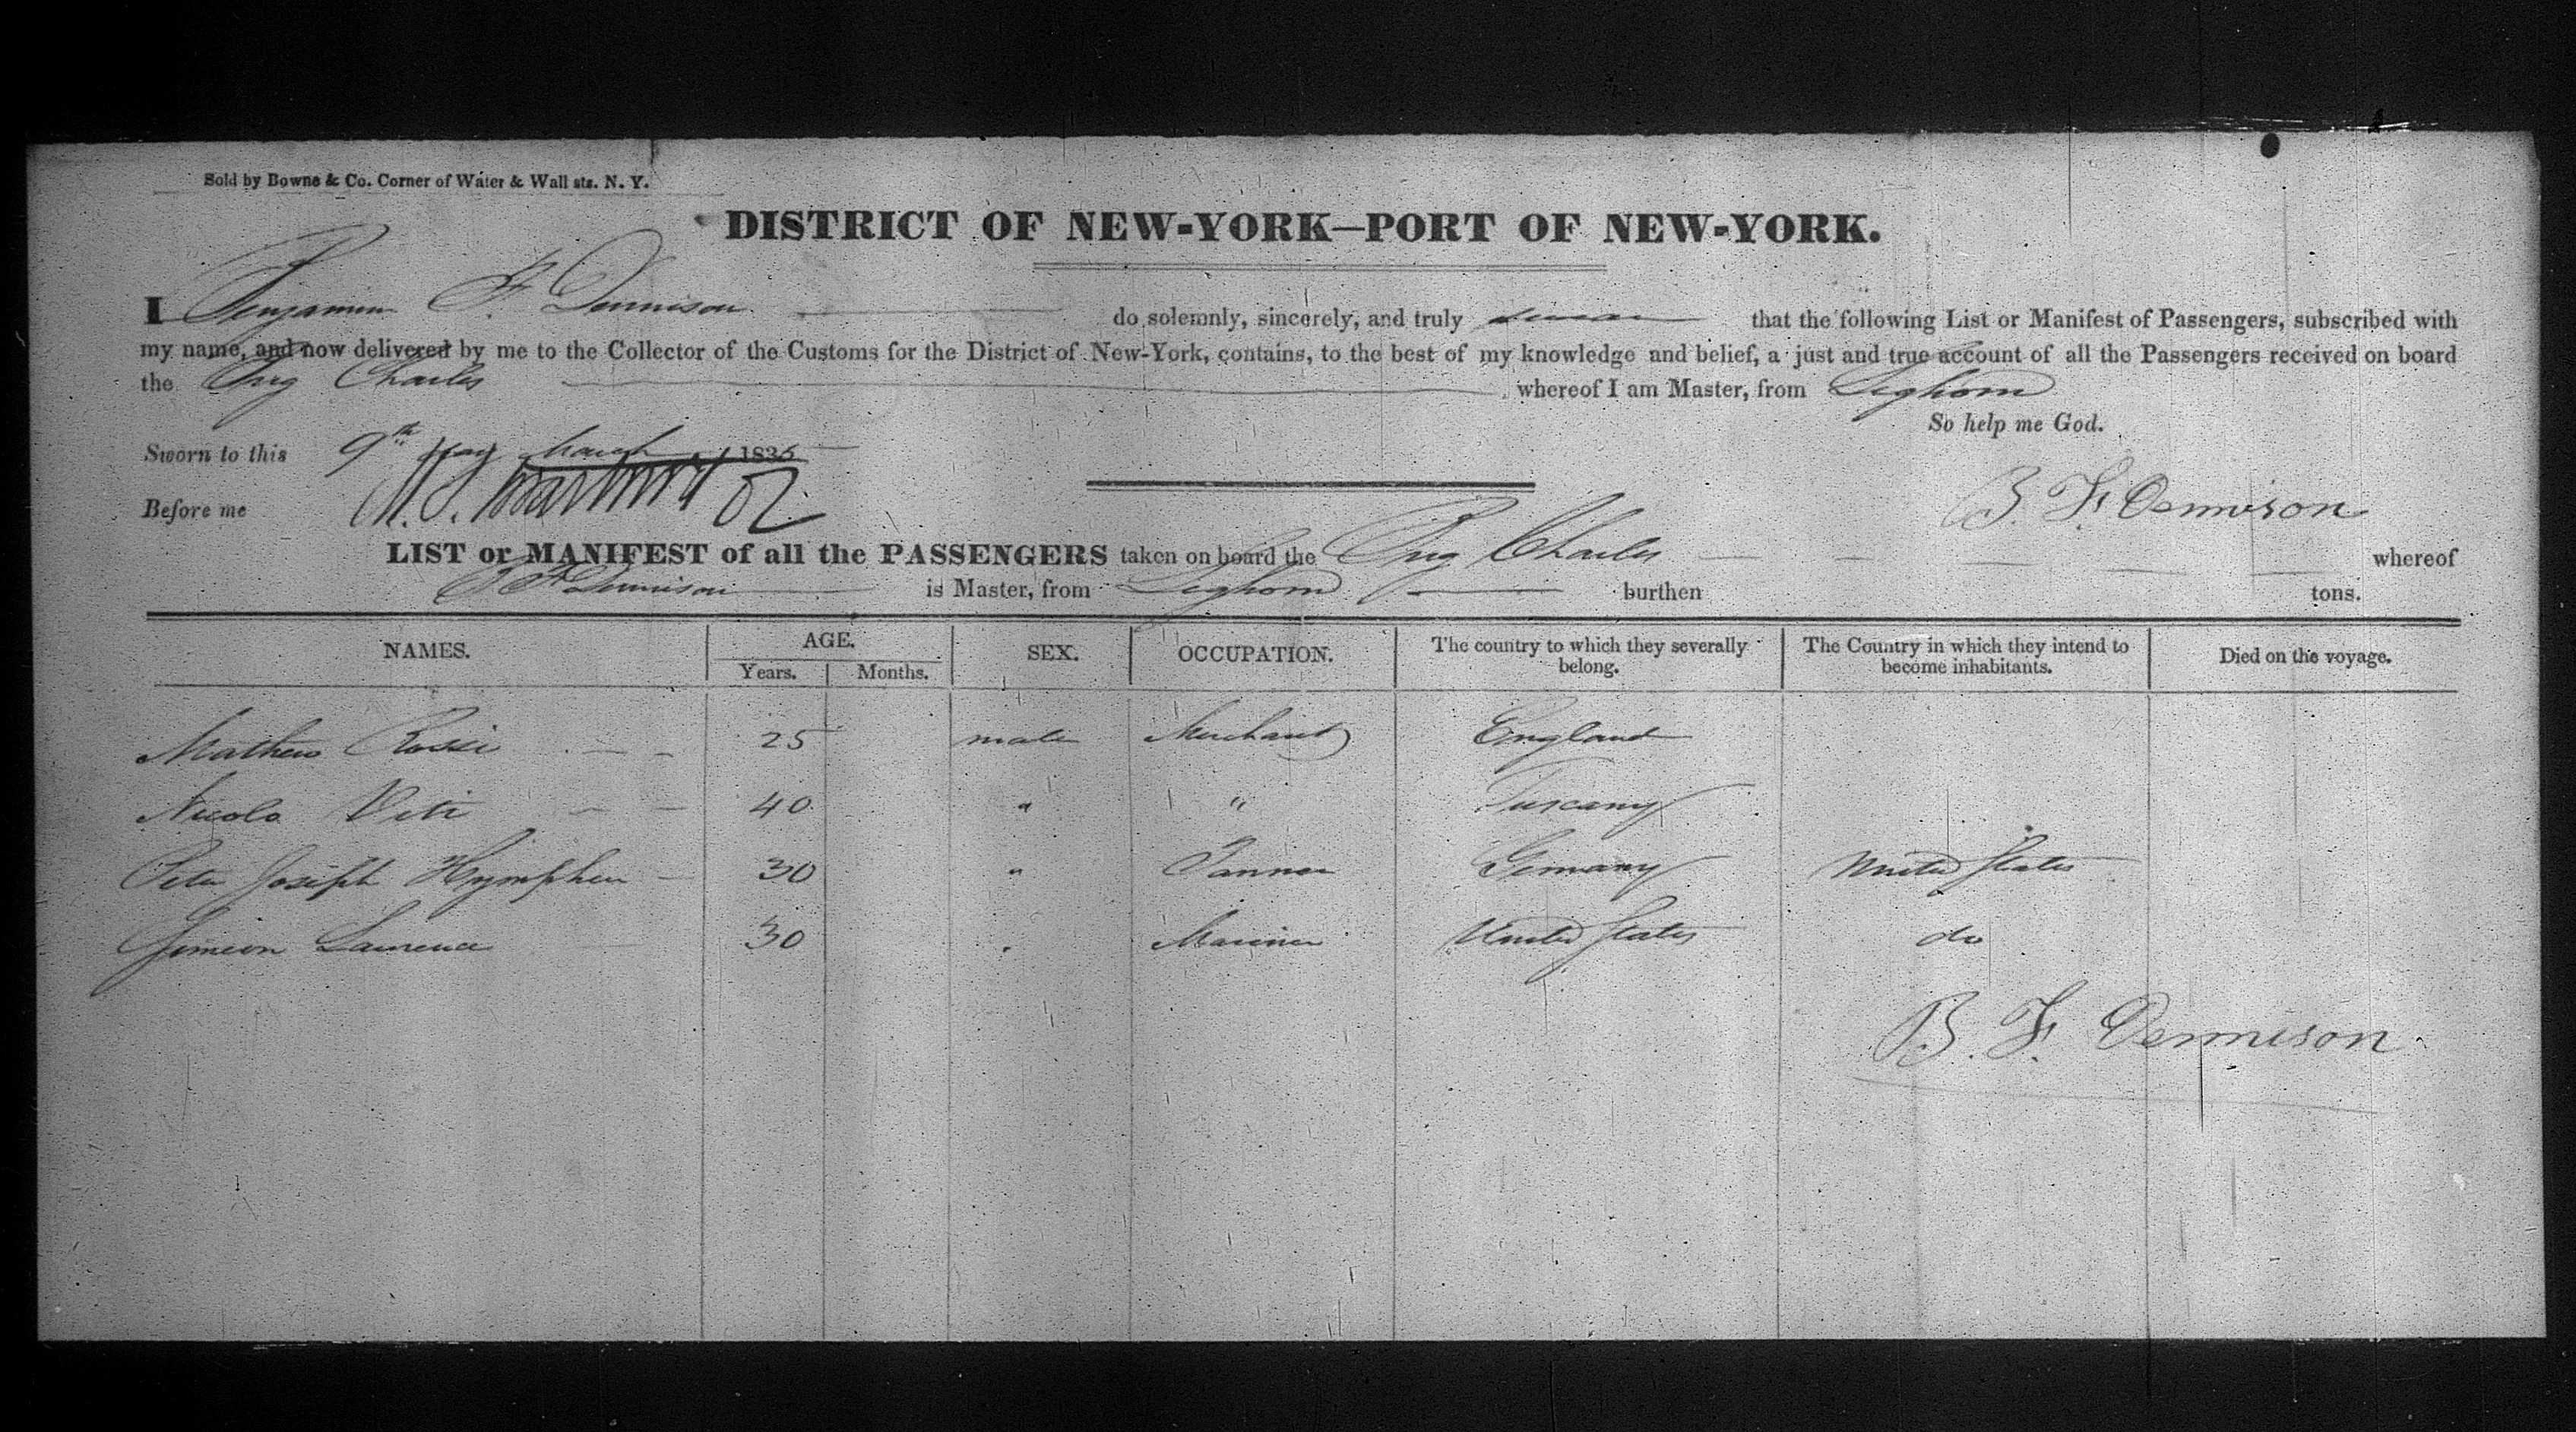 Sold by Bowne & Co. Corner of Water & Wall sts. N. Y.
DISTRICT OF NEW-YORK—PORT OF NEW-YORK.
I Benjamin F. Dennison do solemnly, sincerely, and truly swear that the following List or Manifest of Passengers, subscribed with
my name, and now delivered by me to the Collector of the Customs for the District of New-York, contains, to the best of my knowledge and belief, a just and true account of all the Passengers received on board
the Brig Charles whereof I am Master, from Leghorn
So help me God.
Sworn to this 9th day March 1835
Before me
B. F. Dennison
LIST or MANIFEST of all the PASSENGERS taken on board the Brig Charles whereof
B F Dennison is Master, from Leghorn burthen tons.
NAMES. AGE. SEX. OCCUPATION. The country to which they severally belong. The Country in which they intend to become inhabitants. Died on the voyage.
Years. Months.
Mathew Rossi 25 male Merchant England
Nicola Viti 40 " " Tuscany
Peter Joseph 30 " Tanner Germany United States
Simeon Laurence 30 " Mariner United States do
B. F. Dennison